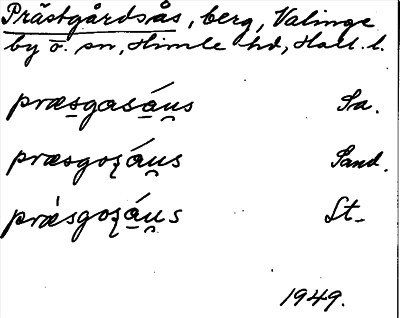 Prästgårdsås, berg, Valinge
by o. sn, Himle hd, Hall. l.
præsgasáu̯s Sa.
præsgoʒáu̯s Sand.
præ̀sgoʒáu̯s St.
1949.